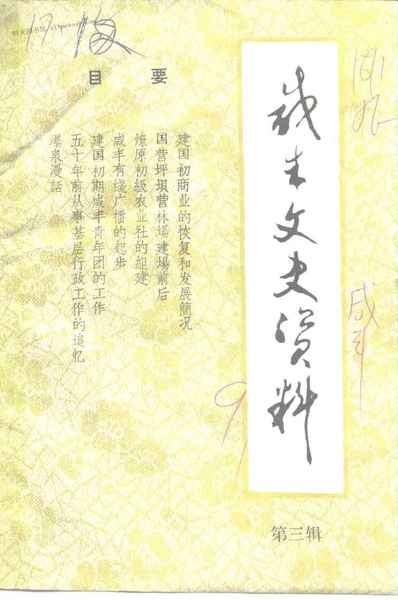 咸丰文史资料
第三辑
目 要
建国初商业的恢复和发展简况
国营坪坝营林场建場前后
燎原初级农业社的组建
咸丰有线广播的起步
建国初期咸丰青年团的工作
五十年前从事基层行政工作的追忆
温泉漫話
咸丰